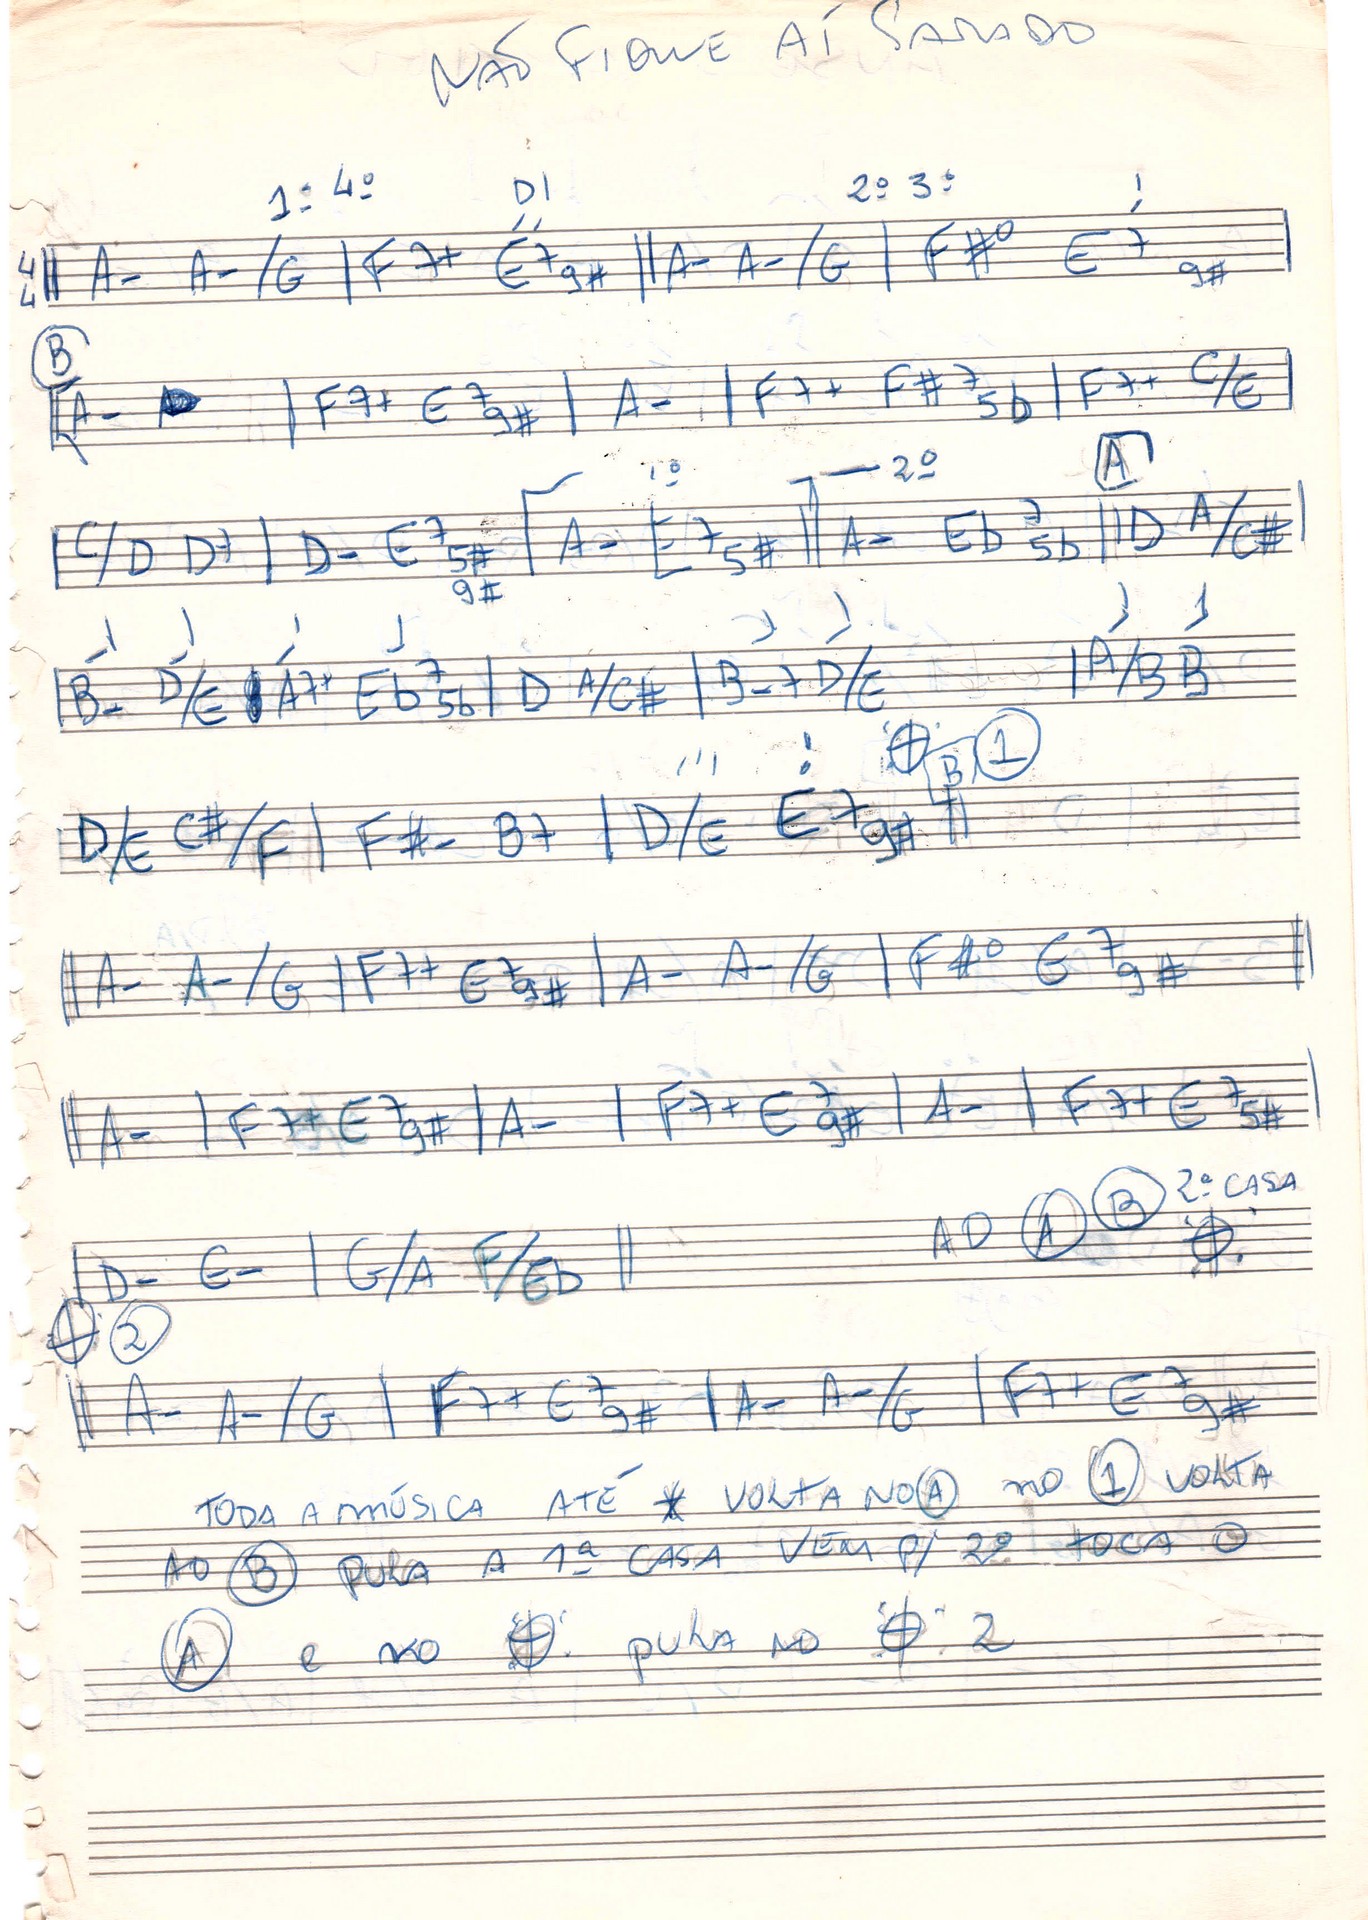 NÃO FIQUE AÍ PARADO
1º 4º DI 2º 3º
4/4 || A- A-/G | F7+ E7 9# || A- A-/G | F#º E7 9# |
B
A- | F7+ E7 9# | A- | F7+ F#7 5b | F7+ C/E |
1º 2º A
| C/D D7 | D- E7 5# 9# | A- E7 5# || A- Eb7 5b || D A/C# |
| B- D/E | A7+ Eb7 5b | D A/C# | B-7 D/E | A/B B
B 1
D/E C#/F | F#- B7 | D/E E7 9# ||
|| A- A-/G | F7+ E7 9# | A- A-/G | F#º E7 9# ||
|| A- | F7+ E7 9# | A- | F7+ E7 9# | A- | F7+ E7 5# |
AO A B 2ª CASA
| D- E- | G/A F/Eb ||
2
|| A- A-/G | F7+ E7 9# | A- A-/G | F7+ E7 9#
TODA A MÚSICA ATÉ * VOLTA NO A no 1 VOLTA
AO B PULA A 1ª CASA VEM P/ 2º TOCA O
A e no 𝄌 PULA NO 𝄌 2